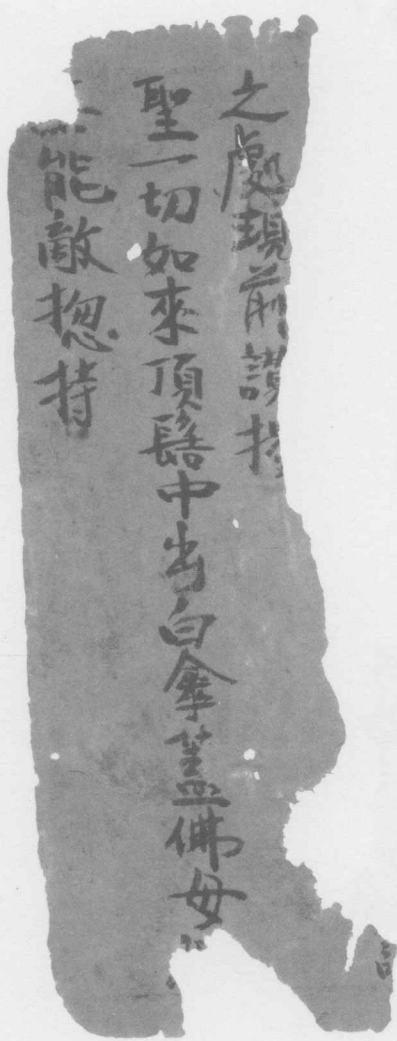 之處現前讃
聖一切如來頂髻中出白傘蓋佛母
能敵揔持